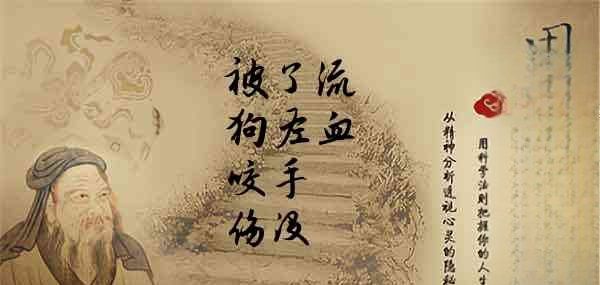 被狗咬伤
了左手没
流血
用科学法则把握你的人生
从精神分析透视心灵的隐秘